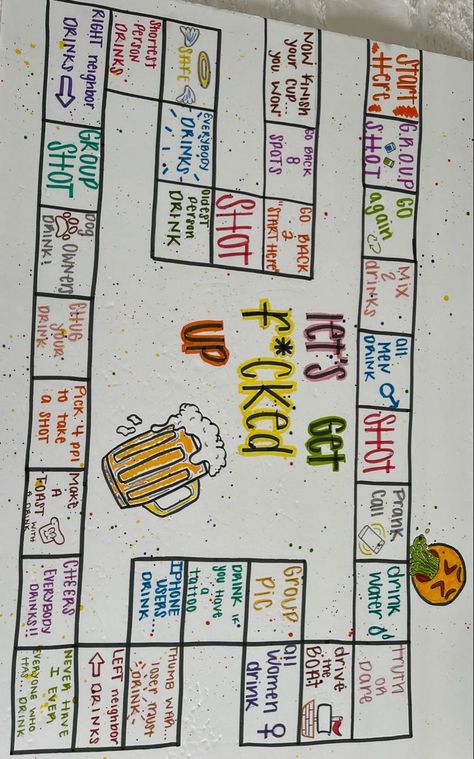 START
HERE
GROUP
SHOT
GO
again
MIX
2
drinks
all
MEN
DRINK
SHOT
Prank
Call
drink
water
truth
or
Dare
drive
the
BOAT
all
women
drink
Group
PIC
DRINK IF
you HAVE
a
tattoo
IPHONE
USERS
DRINK...
THUMB WAR...
loser must
DRINK
LEFT neighbor
DRINKS
NEVER HAVE
I EVER
EVERYONE WHO
HAS... DRINK
CHEERS
EVERYBODY
DRINKS!!
Make
A
TOAST WITH
A DRINK
Pick 4 ppl
to take
a SHOT
CHUG
your
DRINK
Dog
OWNERS
DRINK!
GROUP
SHOT
RIGHT neighbor
DRINKS
Shortest
person
DRINKS
SAFE
EVERYBODY
DRINKS
Oldest
person
DRINK
SHOT
GO BACK
2
"START HERE"
GO BACK
8
SPOTS
NOW FINISH
your cup..
you WON
LET'S GET
F*CKED
UP